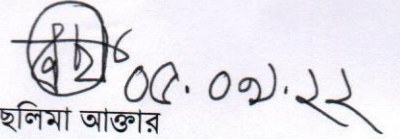 ০৫.০৯.২২
ছলিমা আক্তার